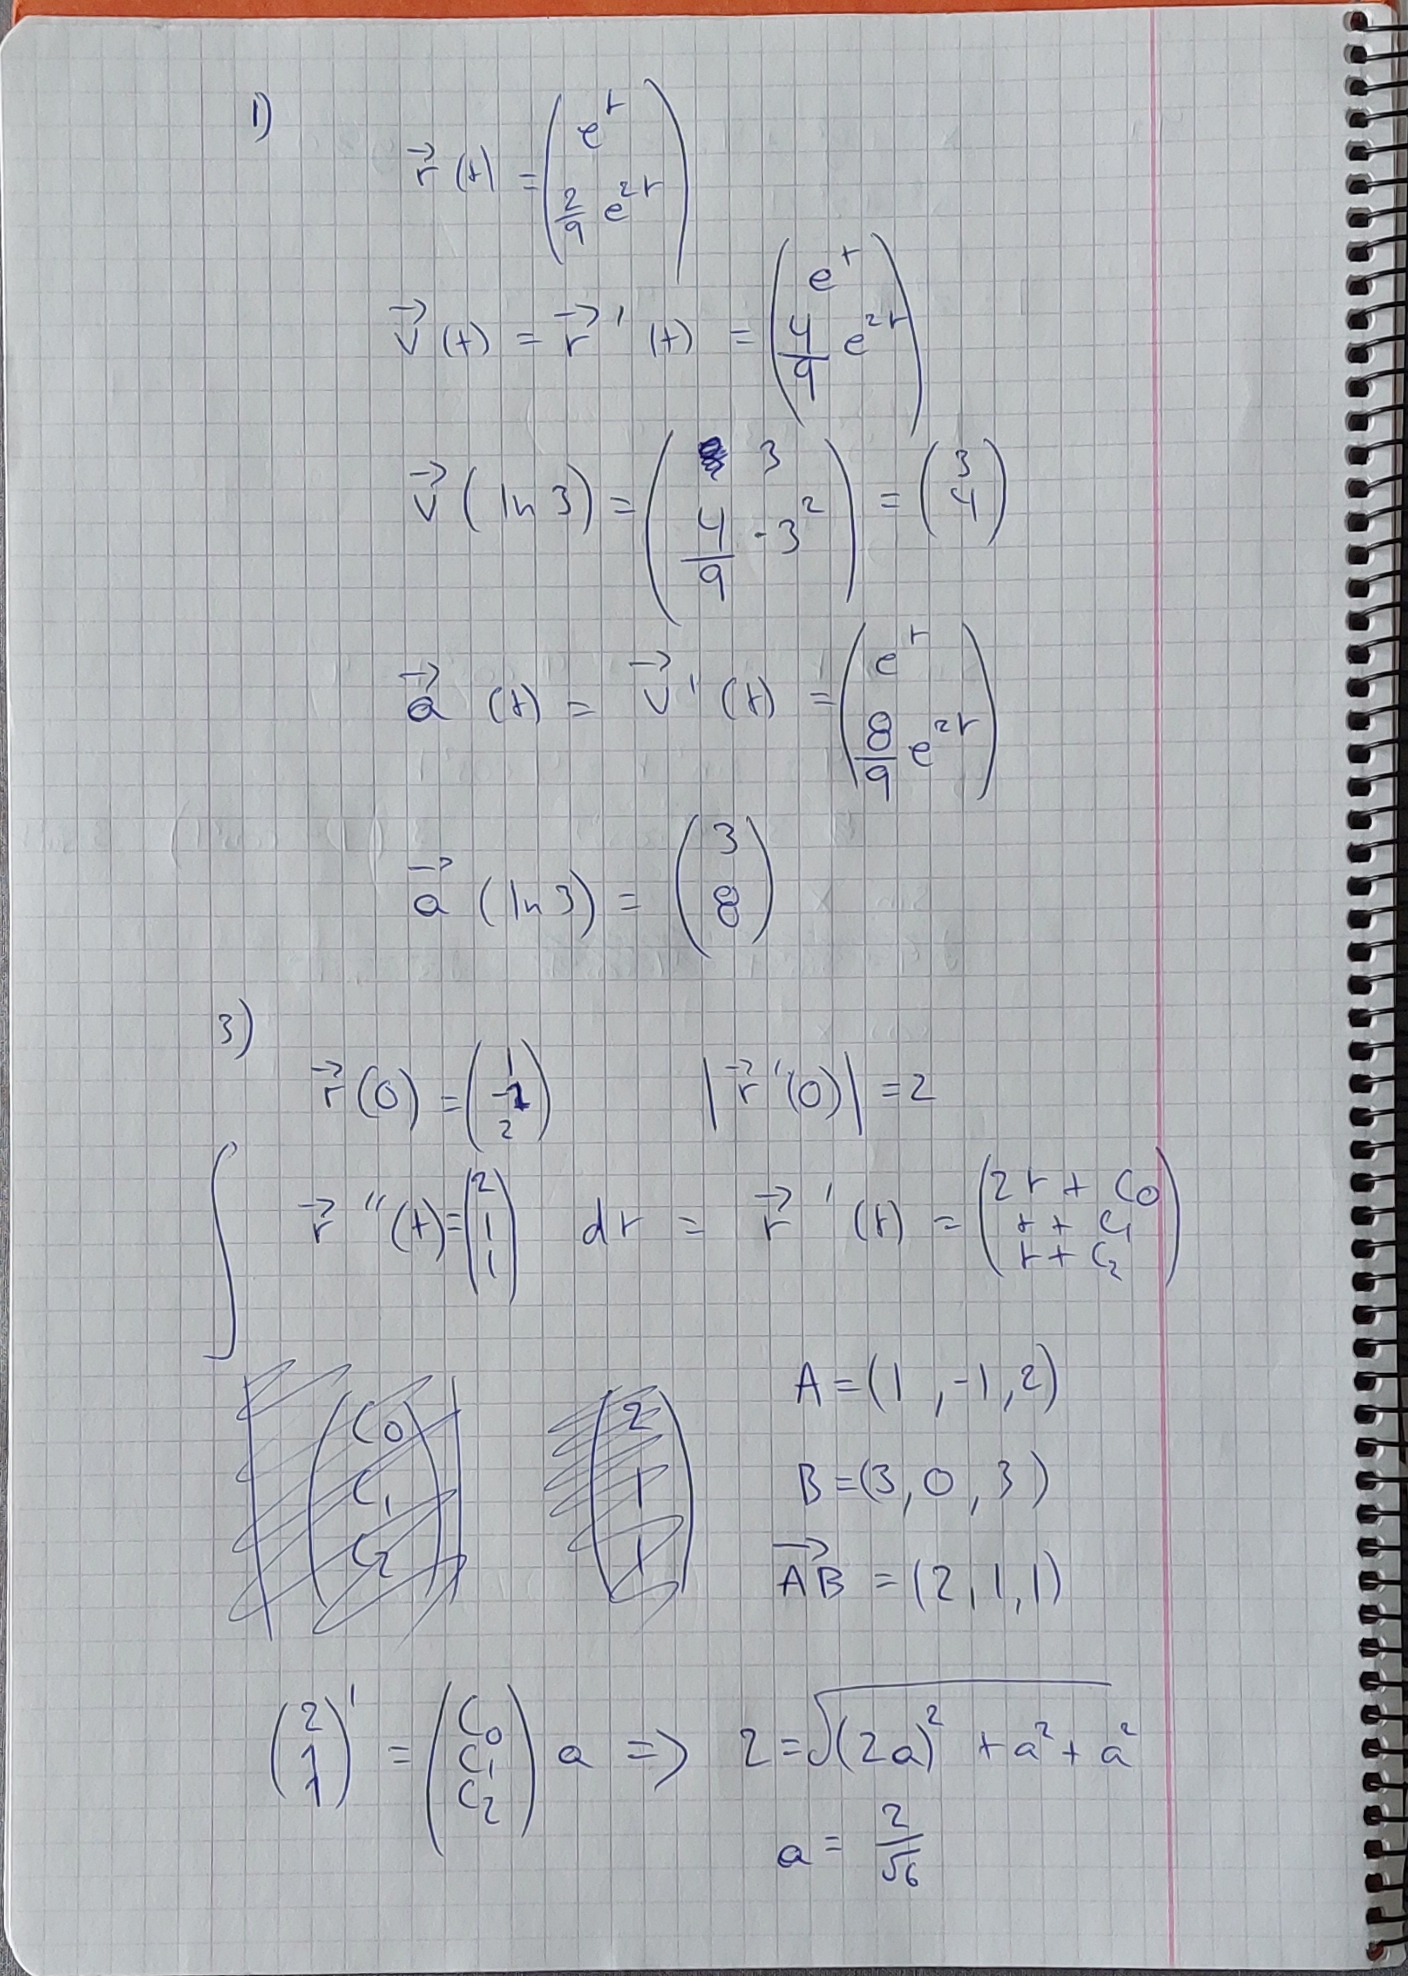 1)
r⃗ (t) = ( e^t ; 2/9 e^2t )
v⃗ (t) = r⃗ ' (t) = ( e^t ; 4/9 e^2t )
v⃗ ( ln 3 ) = ( 3 ; 4/9 · 3^2 ) = ( 3 ; 4 )
a⃗ (t) = v⃗ ' (t) = ( e^t ; 8/9 e^2t )
a⃗ ( ln 3 ) = ( 3 ; 8 )
3)
r⃗ (0) = ( 1 ; -1 ; 2 ) | r⃗ ' (0) | = 2
∫ r⃗ '' (t) = ( 2 ; 1 ; 1 ) dt = r⃗ ' (t) = ( 2t + C0 ; t + C1 ; t + C2 )
| ( C0 ; C1 ; C2 ) | ( 2 ; 1 ; 1 )
A = (1, -1, 2)
B = (3, 0, 3)
A⃗B⃗ = (2, 1, 1)
( 2 ; 1 ; 1 )' = ( C0 ; C1 ; C2 ) a => 2 = √( (2a)^2 + a^2 + a^2 )
a = 2/√6